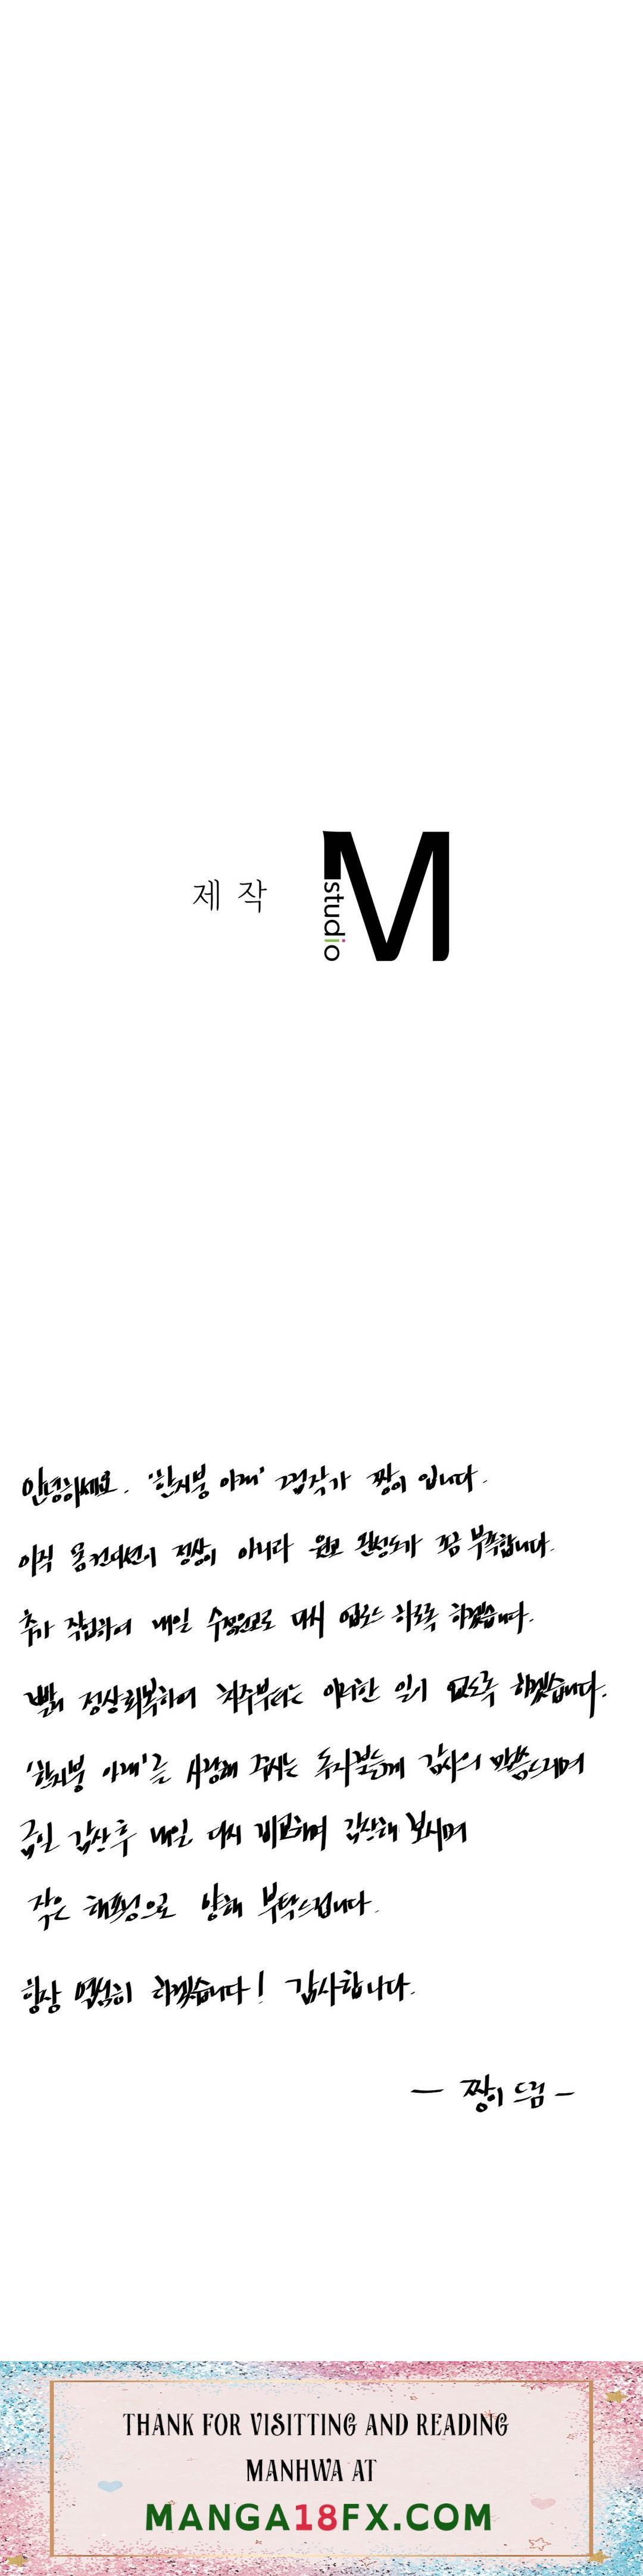 제 작
M
studio
안녕하세요. '한지붕 아래' 그림작가 짱이 입니다.
아직 몸 컨디션이 정상이 아니라 원고 완성도가 조금 부족합니다.
추가 작업하여 내일 수정원고로 다시 업로드 하도록 하겠습니다.
빨리 정상회복하여 차주부터는 이러한 일이 없도록 하겠습니다.
'한지붕 아래'를 사랑해 주시는 독자분들께 감사의 말씀드리며
금일 감상 후 내일 다시 비교하며 감상해 보시며
작은 해프닝으로 양해 부탁드립니다.
항상 열심히 하겠습니다! 감사합니다.
— 짱이 드림 —
THANK FOR VISITTING AND READING
MANHWA AT
MANGA18FX.COM